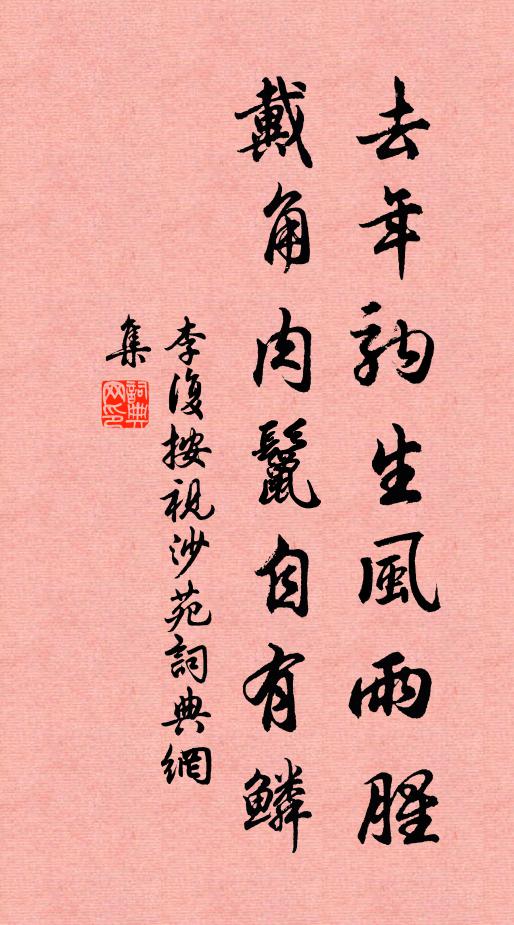 去年駒生風雨腥
戴角肉鬣自有鱗
李復按視沙苑詞典網
集
詞典網印